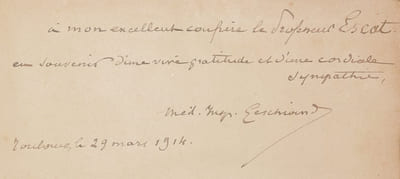 à mon excellent confrère le Professeur Escat.
en souvenir d'une vive gratitude et d'une cordiale
sympathie,
Méd. Maj.
Toulouse, le 29 mars 1914.